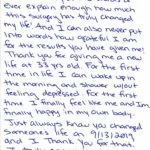 ever explain enough how much
this surgery has truly changed
my life! And I can also never put
into words how grateful I am
for the results you have given me!
Thank you for giving me a new
life at 33 yrs old. For the first
time in life I can wake up in
the morning and shower without
feeling depressed. For the first
time I finally feel like me and I'm
finally happy in my own body.
Just always know you changed
someones life on 9/13/2019
and I Thank You for